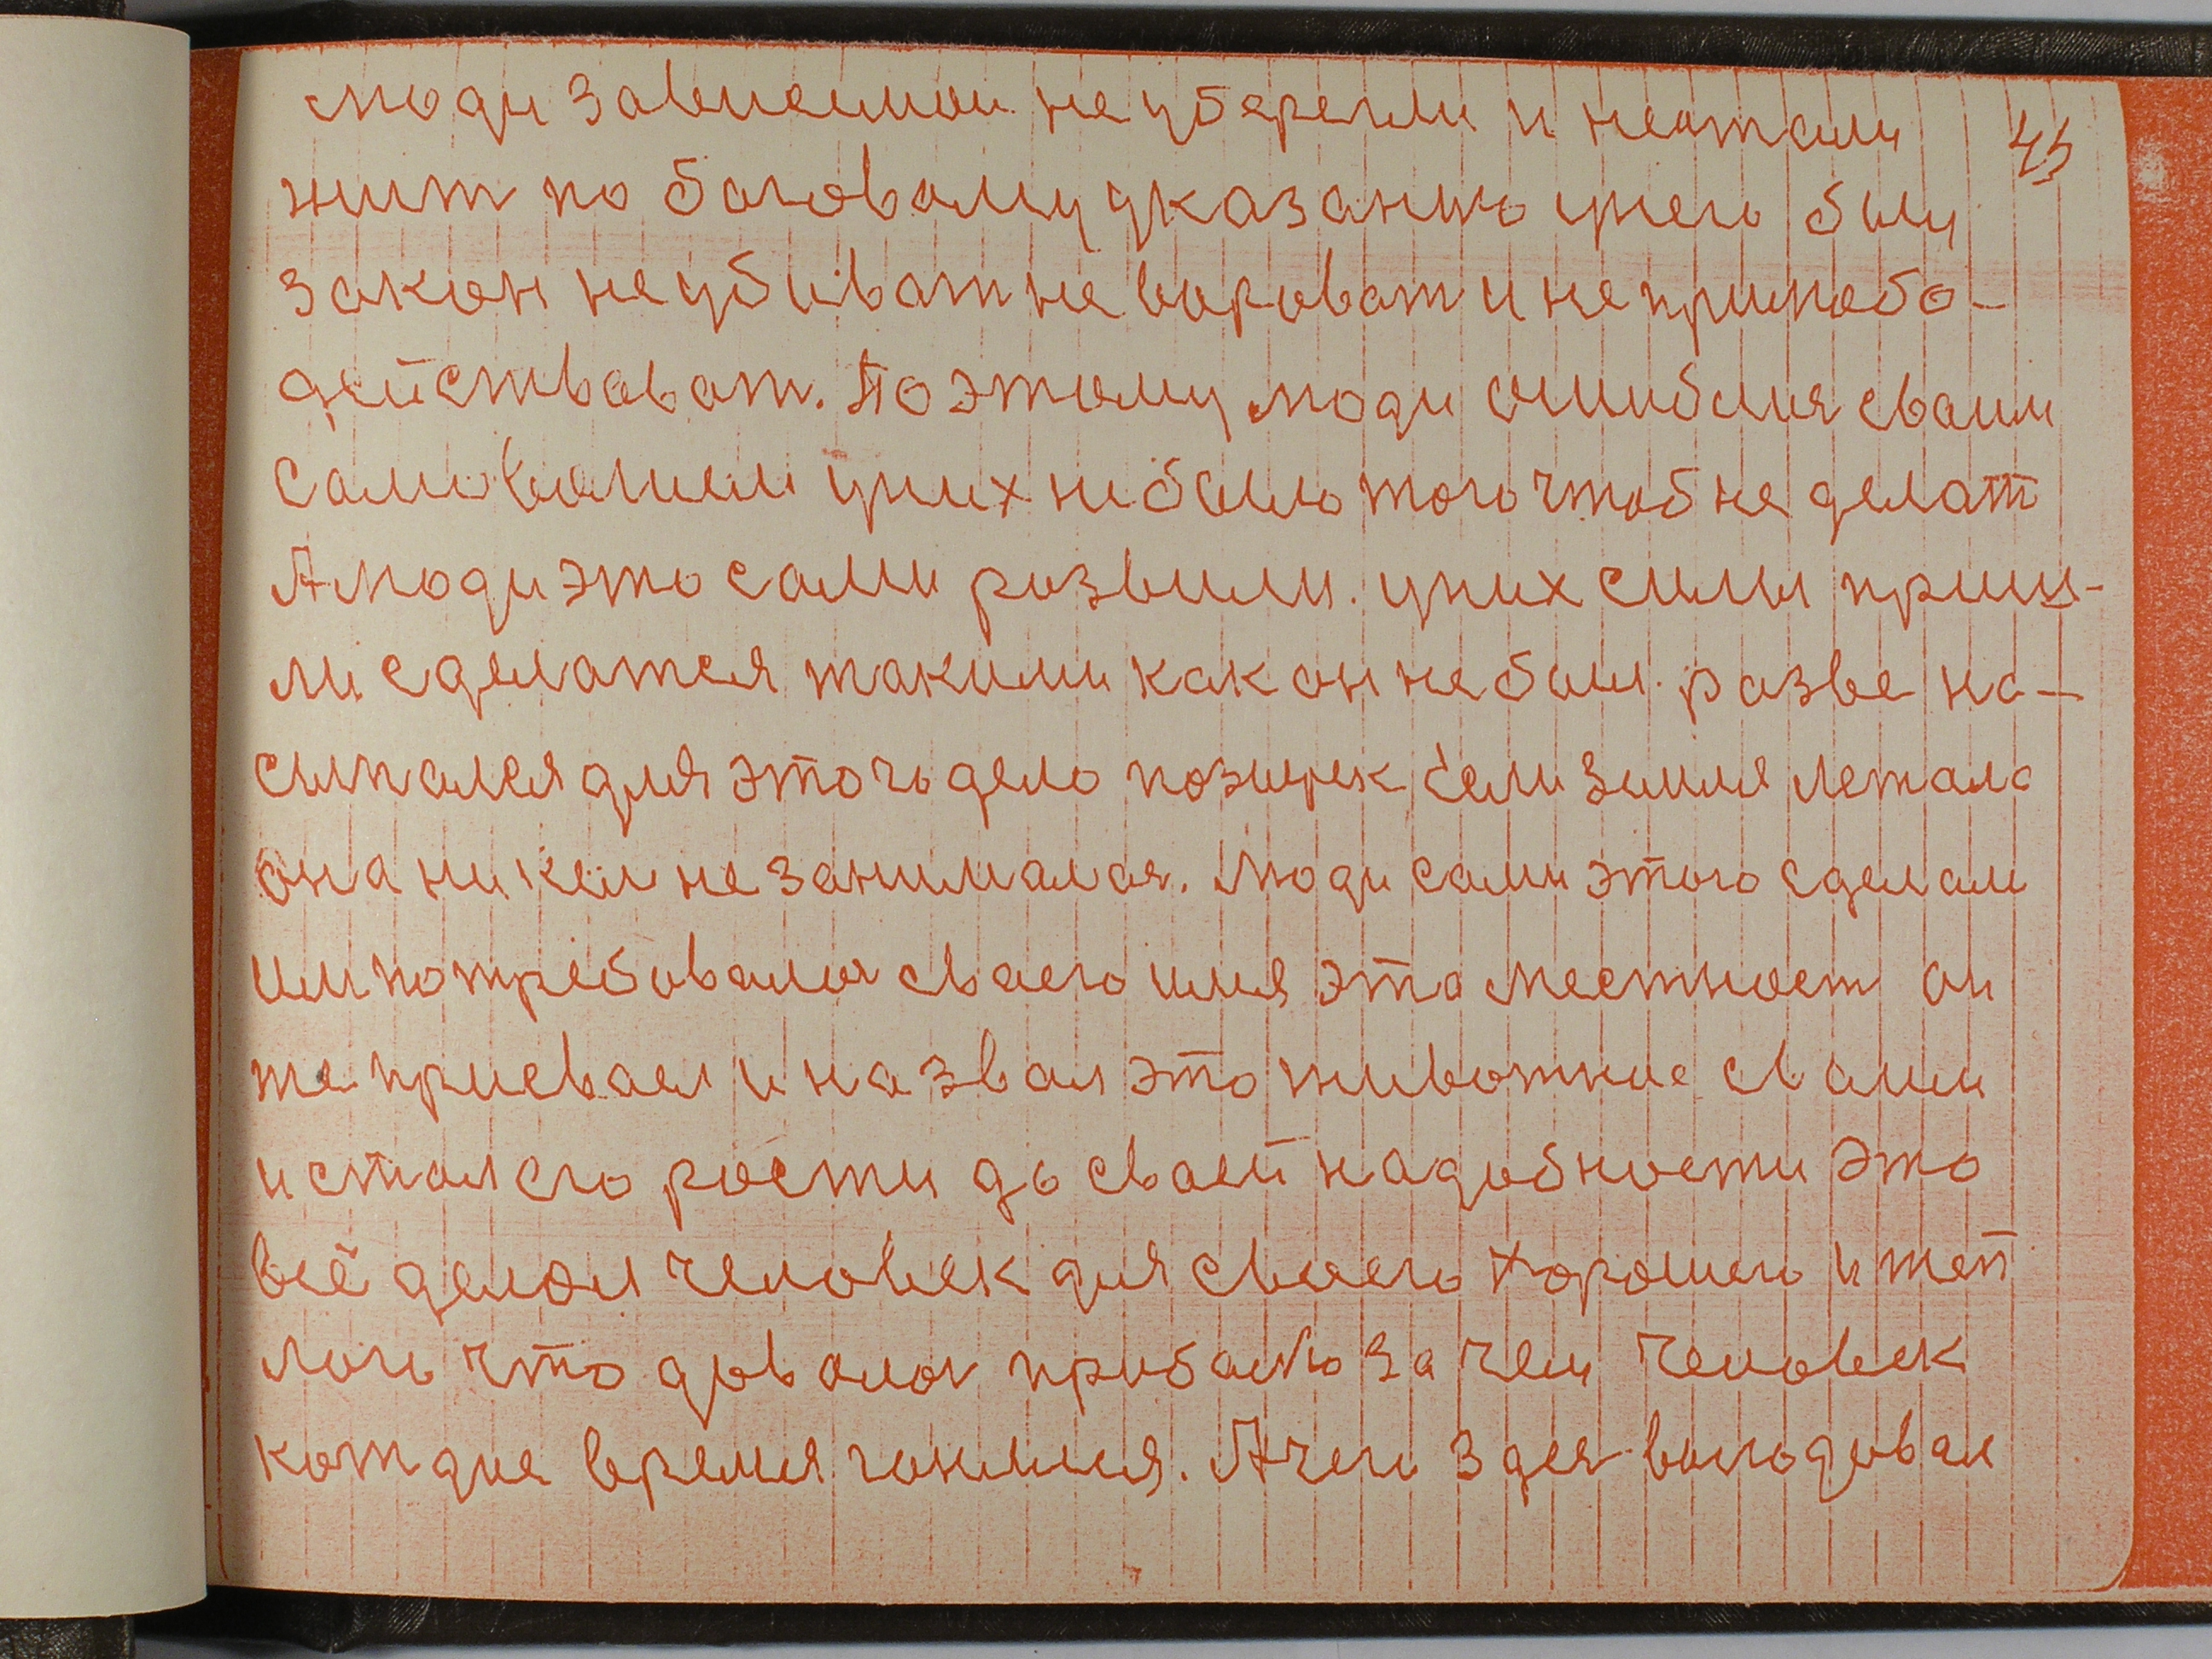 люди зависимои не уберегли и нестали 43
жит по боговому указанию унего был
закон не убиват не вороват и не прилюбо-
действават. Поэтому люди ошиблися своим
самоволием уних не было того чтоб не делат
А люди это сами розвили. уних силы приш-
ли сделатся такими как он не был. разве на-
сыпался для этого дело позырек Если Земля летала
она ни кем не занималас. Люди сами этого сделали
им потребовалос своего имя эта местност он
же присвоел и назвал это животние своими
и стал его рости до своей надобности Это
всё делал человек для своего хорошего и теп
лого что довалос прибалю за чем человек
котдое время гонялися. А чего здес выгодовал